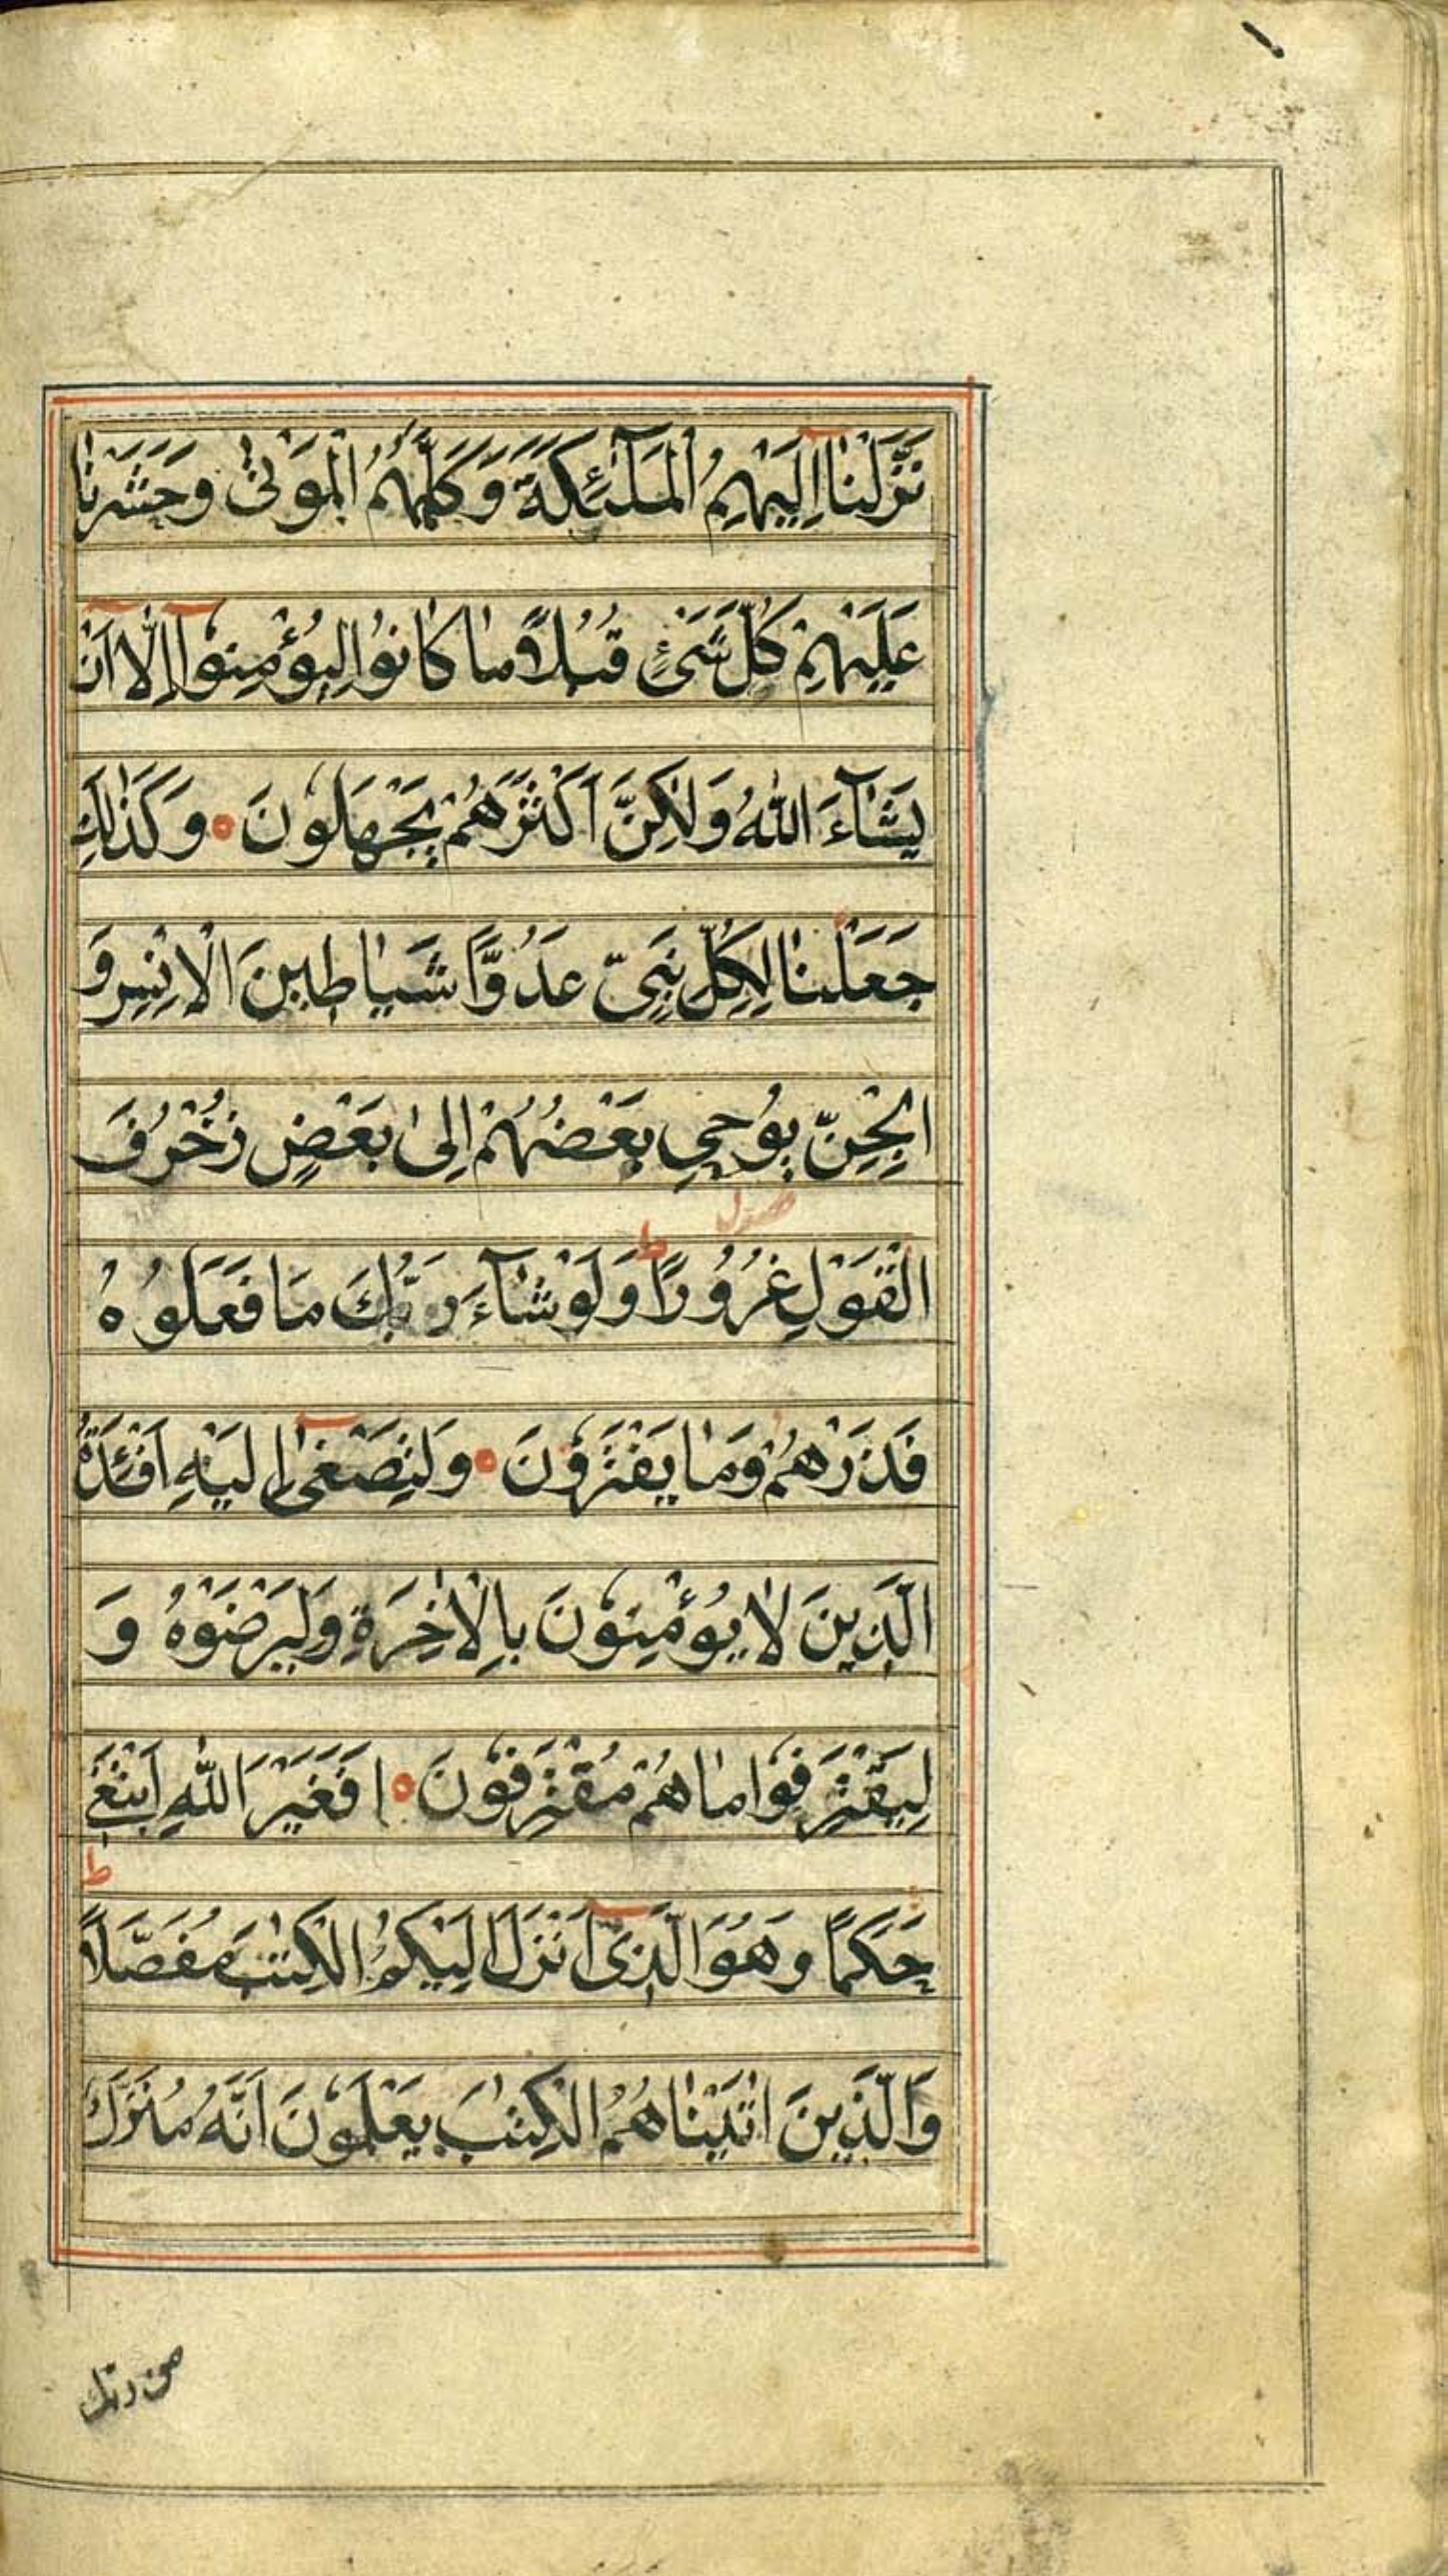 نَزَّلْنَا إِلَيْهِمُ الْمَلٰٓئِكَةَ وَكَلَّمَهُمُ الْمَوْتٰى وَحَشَرْنَا
عَلَيْهِمْ كُلَّ شَىْءٍ قُبُلًا مَا كَانُوا لِيُؤْمِنُوٓا إِلَّا اَنْ
يَشَآءَ اللّٰهُ وَلٰكِنَّ اَكْثَرَهُمْ يَجْهَلُونَ ۰ وَكَذٰلِكَ
جَعَلْنَا لِكُلِّ نَبِىٍّ عَدُوًّا شَيَاطِينَ الْاِنْسِ وَ
الْجِنِّ يُوحِي بَعْضُهُمْ اِلٰى بَعْضٍ زُخْرُفَ
الْقَوْلِ غُرُورًا ط وَلَوْ شَآءَ رَبُّكَ مَا فَعَلُوهُ
فَذَرْهُمْ وَمَا يَفْتَرُونَ ۰ وَلِتَصْغٰٓى اِلَيْهِ اَفْئِدَةُ
الَّذِينَ لَا يُؤْمِنُونَ بِالْاٰخِرَةِ وَلِيَرْضَوْهُ وَ
لِيَقْتَرِفُوا مَا هُمْ مُقْتَرِفُونَ ۰ اَفَغَيْرَ اللّٰهِ اَبْتَغِي
حَكَمًا وَهُوَ الَّذِىٓ اَنْزَلَ اِلَيْكُمُ الْكِتٰبَ مُفَصَّلًا ط
وَالَّذِينَ اٰتَيْنَاهُمُ الْكِتٰبَ يَعْلَمُونَ اَنَّهُ مُنَزَّلٌ
من ربك